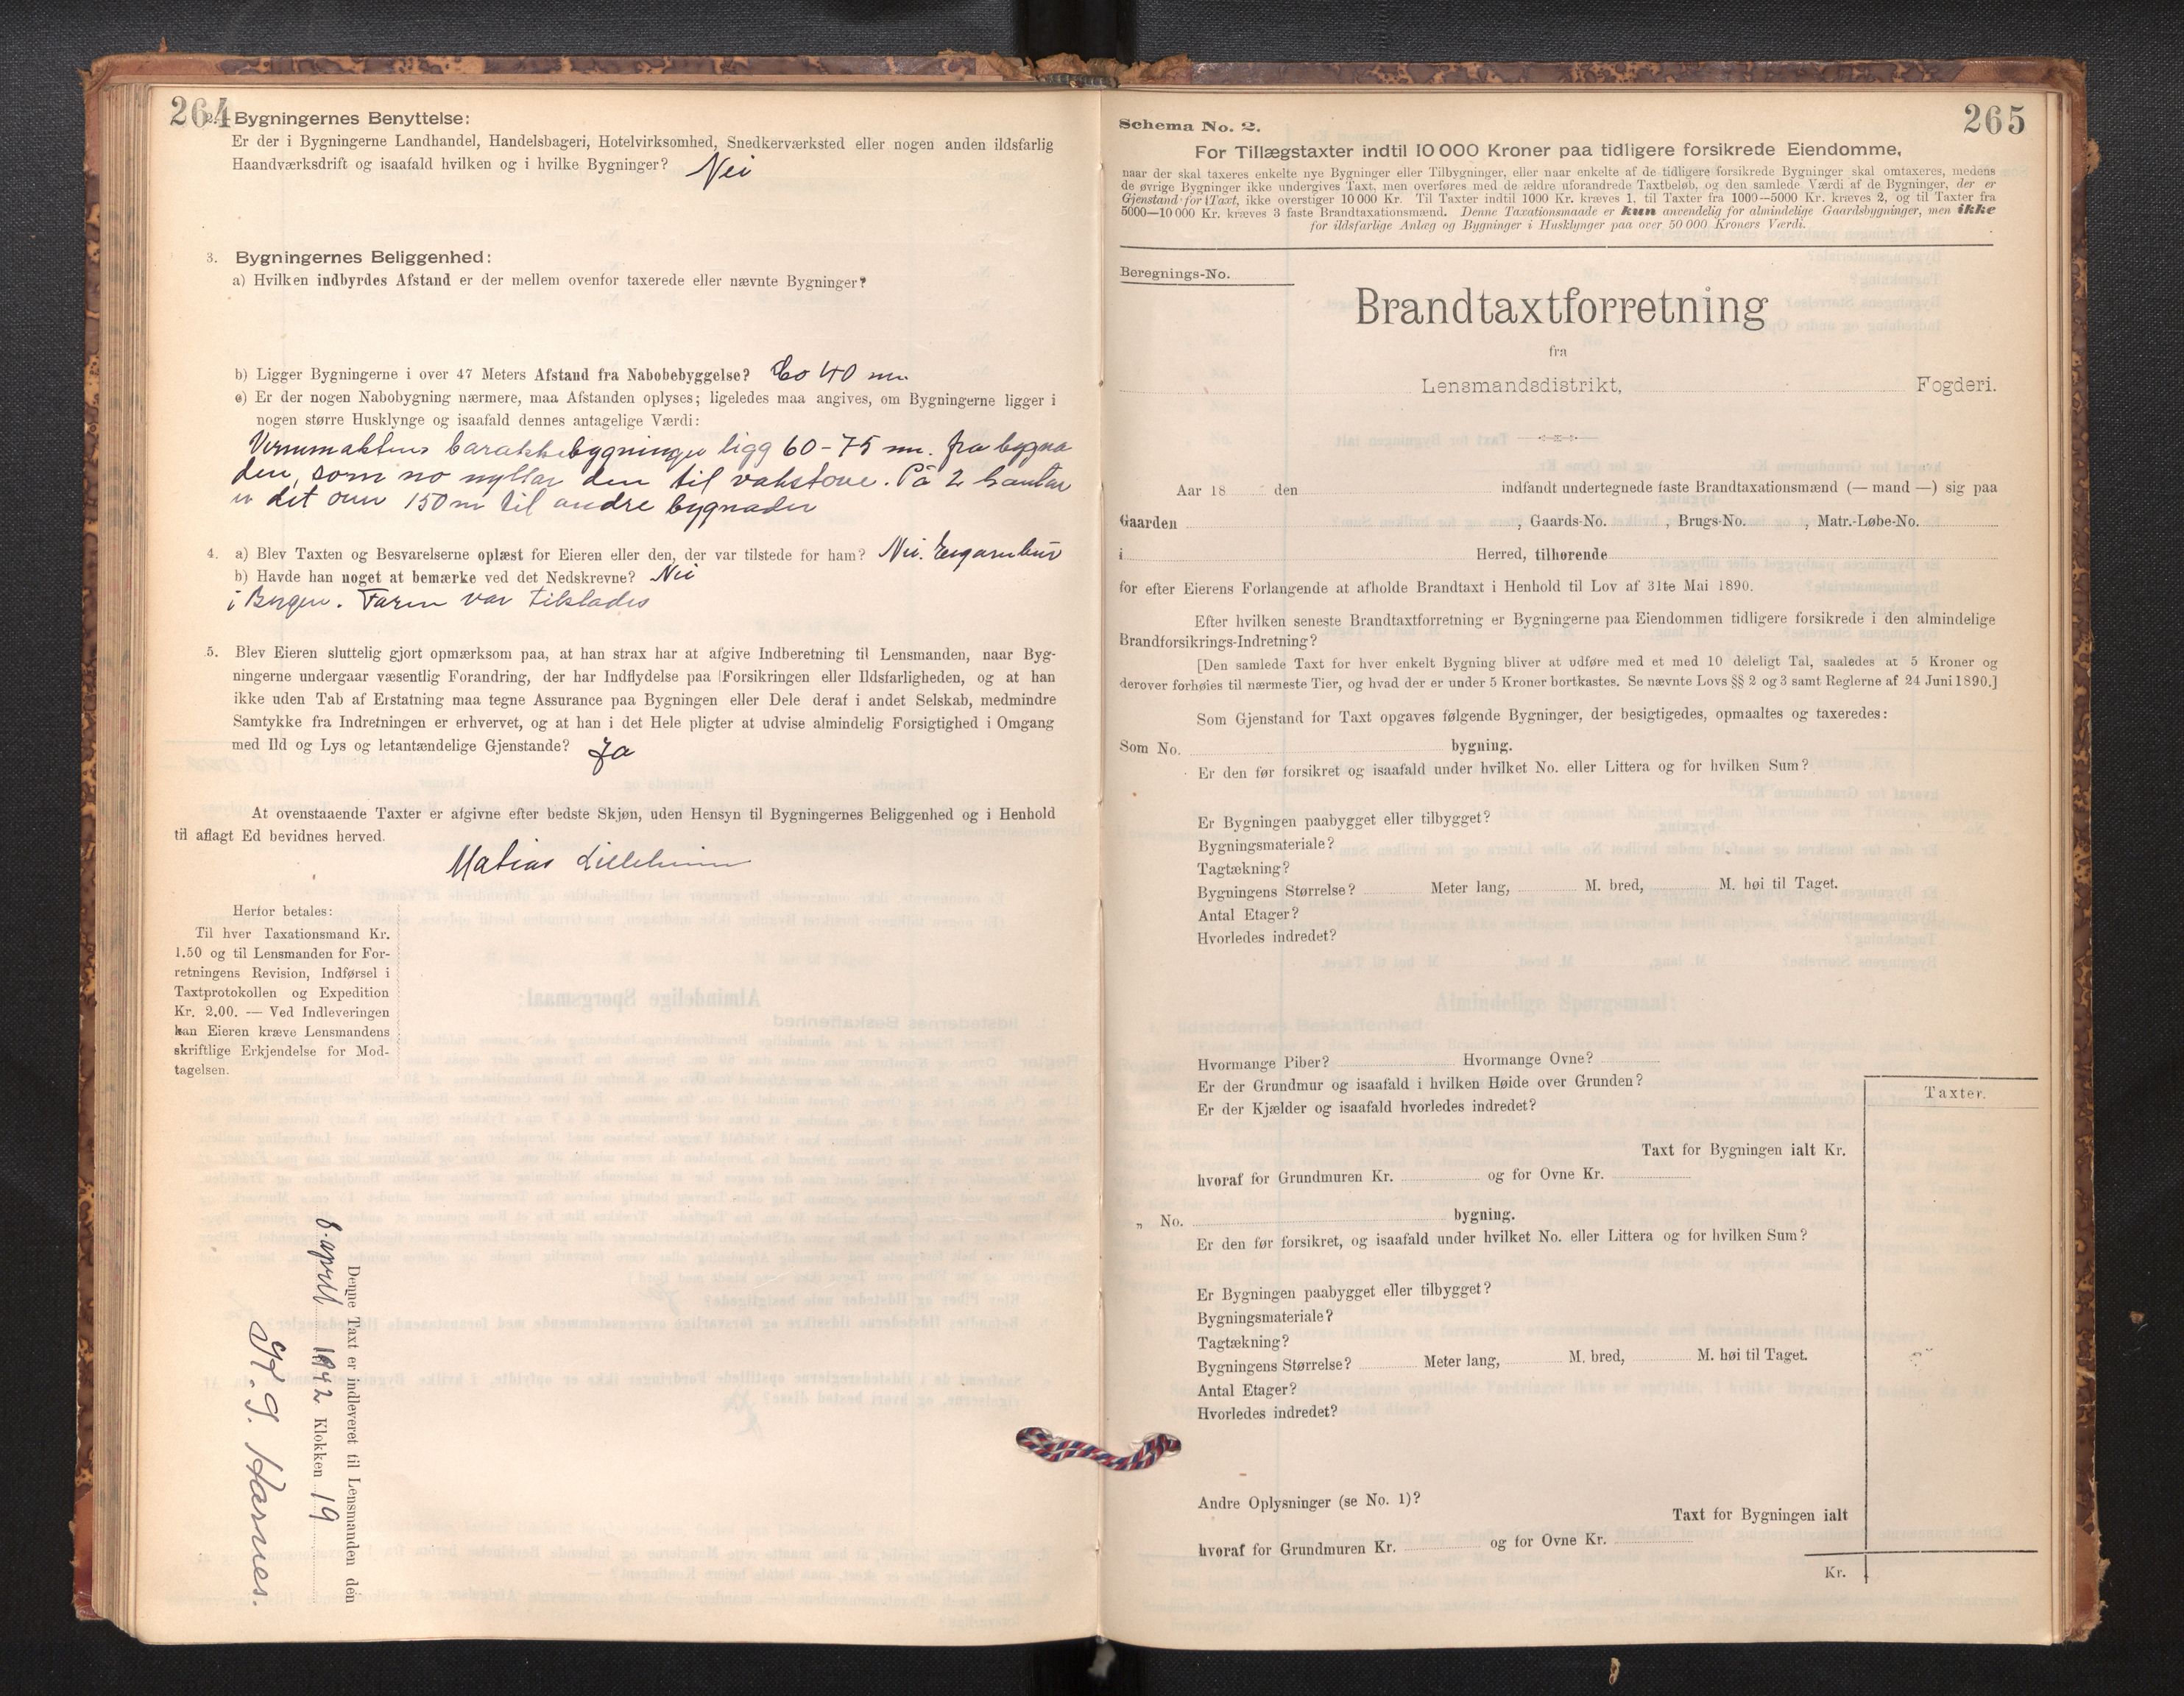 264
2. Bygningernes Benyttelse:
Er der i Bygningerne Landhandel, Handelsbageri, Hotelvirksomhed, Snedkerværksted eller nogen anden ildsfarlig
Haandværksdrift og isaafald hvilken og i hvilke Bygninger? Nei
3. Bygningernes Beliggenhed:
a) Hvilken indbyrdes Afstand er der mellem ovenfor taxerede eller nævnte Bygninger?
b) Ligger Bygningerne i over 47 Meters Afstand fra Nabobebyggelse? Co 40 m.
c) Er der nogen Nabobygning nærmere, maa Afstanden oplyses; ligeledes maa angives, om Bygningerne ligger i
nogen større Husklynge og isaafald dennes antagelige Værdi:
barakkebygninger ligg 60-75 m. fra bygna
den, som no nyttar den til vaktstove. På 2 kantar
er det over 150 m til andre bygnader
4. a) Blev Taxten og Besvarelserne oplæst for Eieren eller den, der var tilstede for ham? Nei. Eigaren bur
b) Havde han noget at bemærke ved det Nedskrevne? Nei
i Bergen. Faren var tilstades
5. Blev Eieren sluttelig gjort opmærksom paa, at han strax har at afgive Indberetning til Lensmanden, naar Byg-
ningerne undergaar væsentlig Forandring, der har Indflydelse paa Forsikringen eller Ildsfarligheden, og at han
ikke uden Tab af Erstatning maa tegne Assurance paa Bygningen eller Dele deraf i andet Selskab, medmindre
Samtykke fra Indretningen er erhvervet, og at han i det Hele pligter at udvise almindelig Forsigtighed i Omgang
med Ild og Lys og letantændelige Gjenstande? Ja
At ovenstaaende Taxter er afgivne efter bedste Skjøn, uden Hensyn til Bygningernes Beliggenhed og i Henhold
til aflagt Ed bevidnes herved.
Matias Lilleheim
Herfor betales:
Til hver Taxationsmand Kr.
1.50 og til Lensmanden for For-
retningens Revision, Indførsel i
Taxtprotokollen og Expedition
Kr. 2.00. — Ved Indleveringen
kan Eieren kræve Lensmandens
skriftlige Erkjendelse for Mod-
tagelsen.
Denne Taxt er indleveret til Lensmanden den
8. april 1942 Klokken 19
265
Schema No. 2.
For Tillægstaxter indtil 10 000 Kroner paa tidligere forsikrede Eiendomme,
naar der skal taxeres enkelte nye Bygninger eller Tilbygninger, eller naar enkelte af de tidligere forsikrede Bygninger skal omtaxeres, medens
de øvrige Bygninger ikke undergives Taxt, men overføres med de ældre uforandrede Taxtbeløb, og den samlede Værdi af de Bygninger, der er
Gjenstand for Taxt, ikke overstiger 10 000 Kr. Til Taxter indtil 1000 Kr. kræves 1, til Taxter fra 1000—5000 Kr. kræves 2, og til Taxter fra
5000—10 000 Kr. kræves 3 faste Brandtaxationsmænd. Denne Taxationsmaade er kun anvendelig for almindelige Gaardsbygninger, men ikke
for ildsfarlige Anlæg og Bygninger i Husklynger paa over 50 000 Kroners Værdi.
Beregnings-No.
Brandtaxtforretning
fra
Lensmandsdistrikt, Fogderi.
Aar 18 den indfandt undertegnede faste Brandtaxationsmænd (— mand —) sig paa
Gaarden , Gaards-No. , Brugs-No. , Matr.-Løbe-No.
i Herred, tilhørende
for efter Eierens Forlangende at afholde Brandtaxt i Henhold til Lov af 31te Mai 1890.
Efter hvilken seneste Brandtaxtforretning er Bygningerne paa Eiendommen tidligere forsikrede i den almindelige
Brandforsikrings-Indretning?
[Den samlede Taxt for hver enkelt Bygning bliver at udføre med et med 10 deleligt Tal, saaledes at 5 Kroner og
derover forhøies til nærmeste Tier, og hvad der er under 5 Kroner bortkastes. Se nævnte Lovs §§ 2 og 3 samt Reglerne af 24 Juni 1890.]
Som Gjenstand for Taxt opgaves følgende Bygninger, der besigtigedes, opmaaltes og taxeredes:
Som No. bygning.
Er den før forsikret og isaafald under hvilket No. eller Littera og for hvilken Sum?
Er Bygningen paabygget eller tilbygget?
Bygningsmateriale?
Tagtækning?
Bygningens Størrelse? Meter lang, M. bred, M. høi til Taget.
Antal Etager?
Hvorledes indredet?
Hvormange Piber? Hvormange Ovne?
Er der Grundmur og isaafald i hvilken Høide over Grunden?
Er der Kjælder og isaafald hvorledes indredet?
Taxter.
Taxt for Bygningen ialt Kr.
hvoraf for Grundmuren Kr. og for Ovne Kr.
„ No. bygning.
Er den før forsikret, og isaafald under hvilket No. eller Littera og for hvilken Sum?
Er Bygningen paabygget eller tilbygget?
Bygningsmateriale?
Tagtækning?
Bygningens Størrelse? Meter lang, M. bred, M. høi til Taget.
Antal Etager?
Hvorledes indredet?
Andre Oplysninger (se No. 1)?
Taxt for Bygningen ialt
hvoraf for Grundmuren Kr. og for Ovne Kr.
Kr.